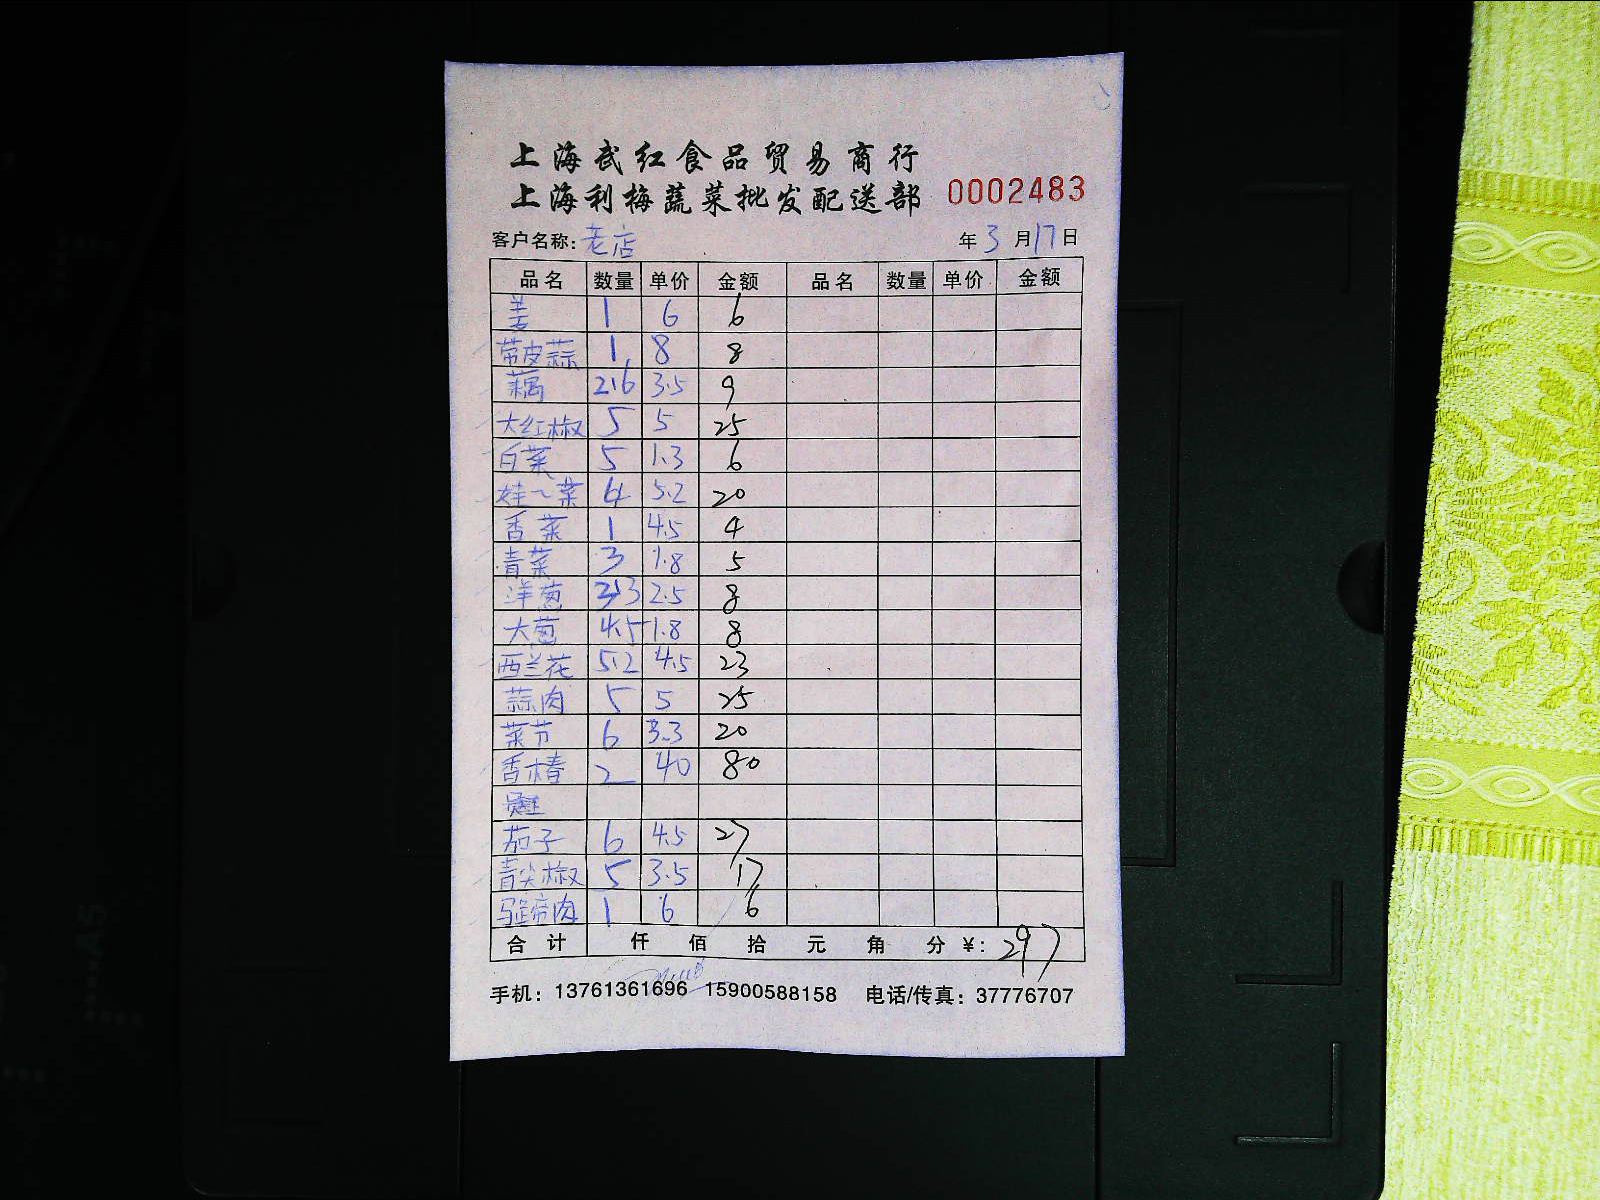 上海武红食品贸易商行
上海利梅蔬菜批发配送部 0002483
客户名称: 老店 年 3 月 17 日
品名 数量 单价 金额 品名 数量 单价 金额
姜 1 6 6
带皮蒜 1 8 8
藕 2.6 3.5 9
大红椒 5 5 25
白菜 5 1.3 6
娃~菜 4 5.2 20
香菜 1 4.5 4
青菜 3 1.8 5
洋葱 2.5 8
大葱 4.5 1.8 8
西兰花 5.2 4.5 23
蒜肉 5 5 25
菜节 6 3.3 20
香椿 2 40 80
茄子 6 4.5 27
青尖椒 5 3.5 17
肉 1 6 6
合计 仟 佰 拾 元 角 分 ¥: 297
手机: 13761361696 15900588158 电话/传真: 37776707